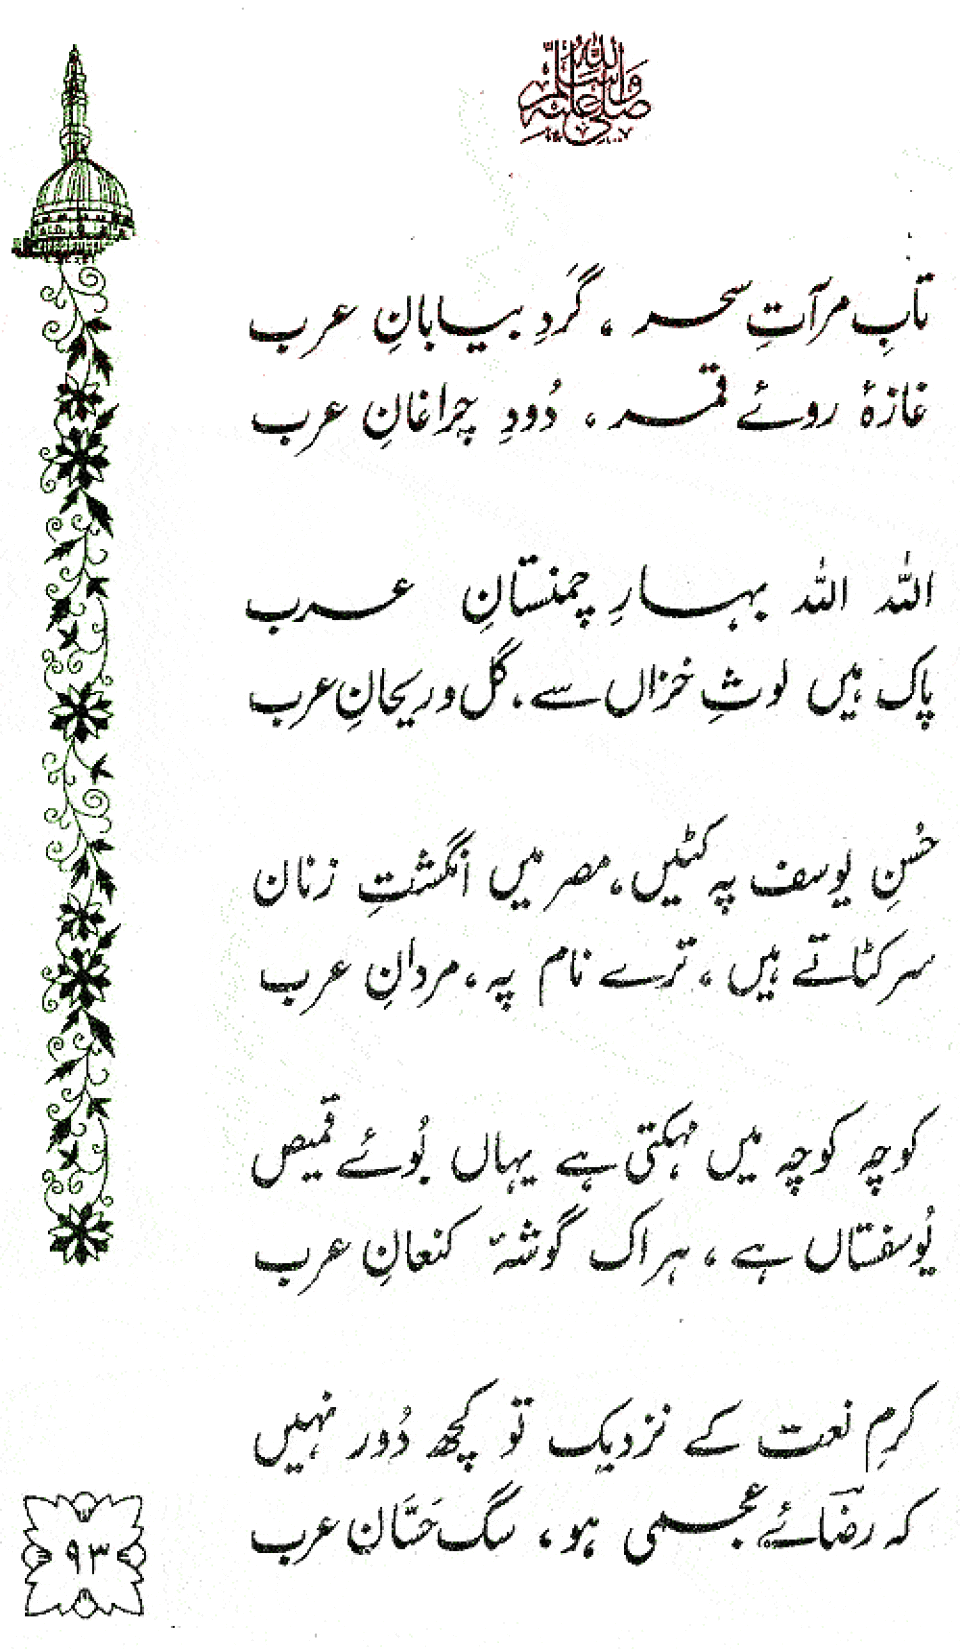 صلی اللہ علیہ وسلم
تابِ مرآتِ سحر ، گَردِ بیابانِ عرب
غازۂ روئے قمر ، دُودِ چراغانِ عرب
اللہ اللہ بہارِ چمنستانِ عرب
پاک ہیں لوثِ خزاں سے ، گل و ریحانِ عرب
حُسنِ یوسف پہ کٹیں ، مصر میں انگشتِ زناں
سر کٹاتے ہیں ، ترے نام پہ ، مردانِ عرب
کوچہ کوچہ میں مہکتی ہے یہاں بُوئے قمیص
یُوسفستاں ہے ، ہر اک گوشۂ کنعانِ عرب
کرمِ نعت کے نزدیک تو کچھ دُور نہیں
کہ رضؔائے عجمی ہو ، سگِ حَسَّانِ عرب
۹۳